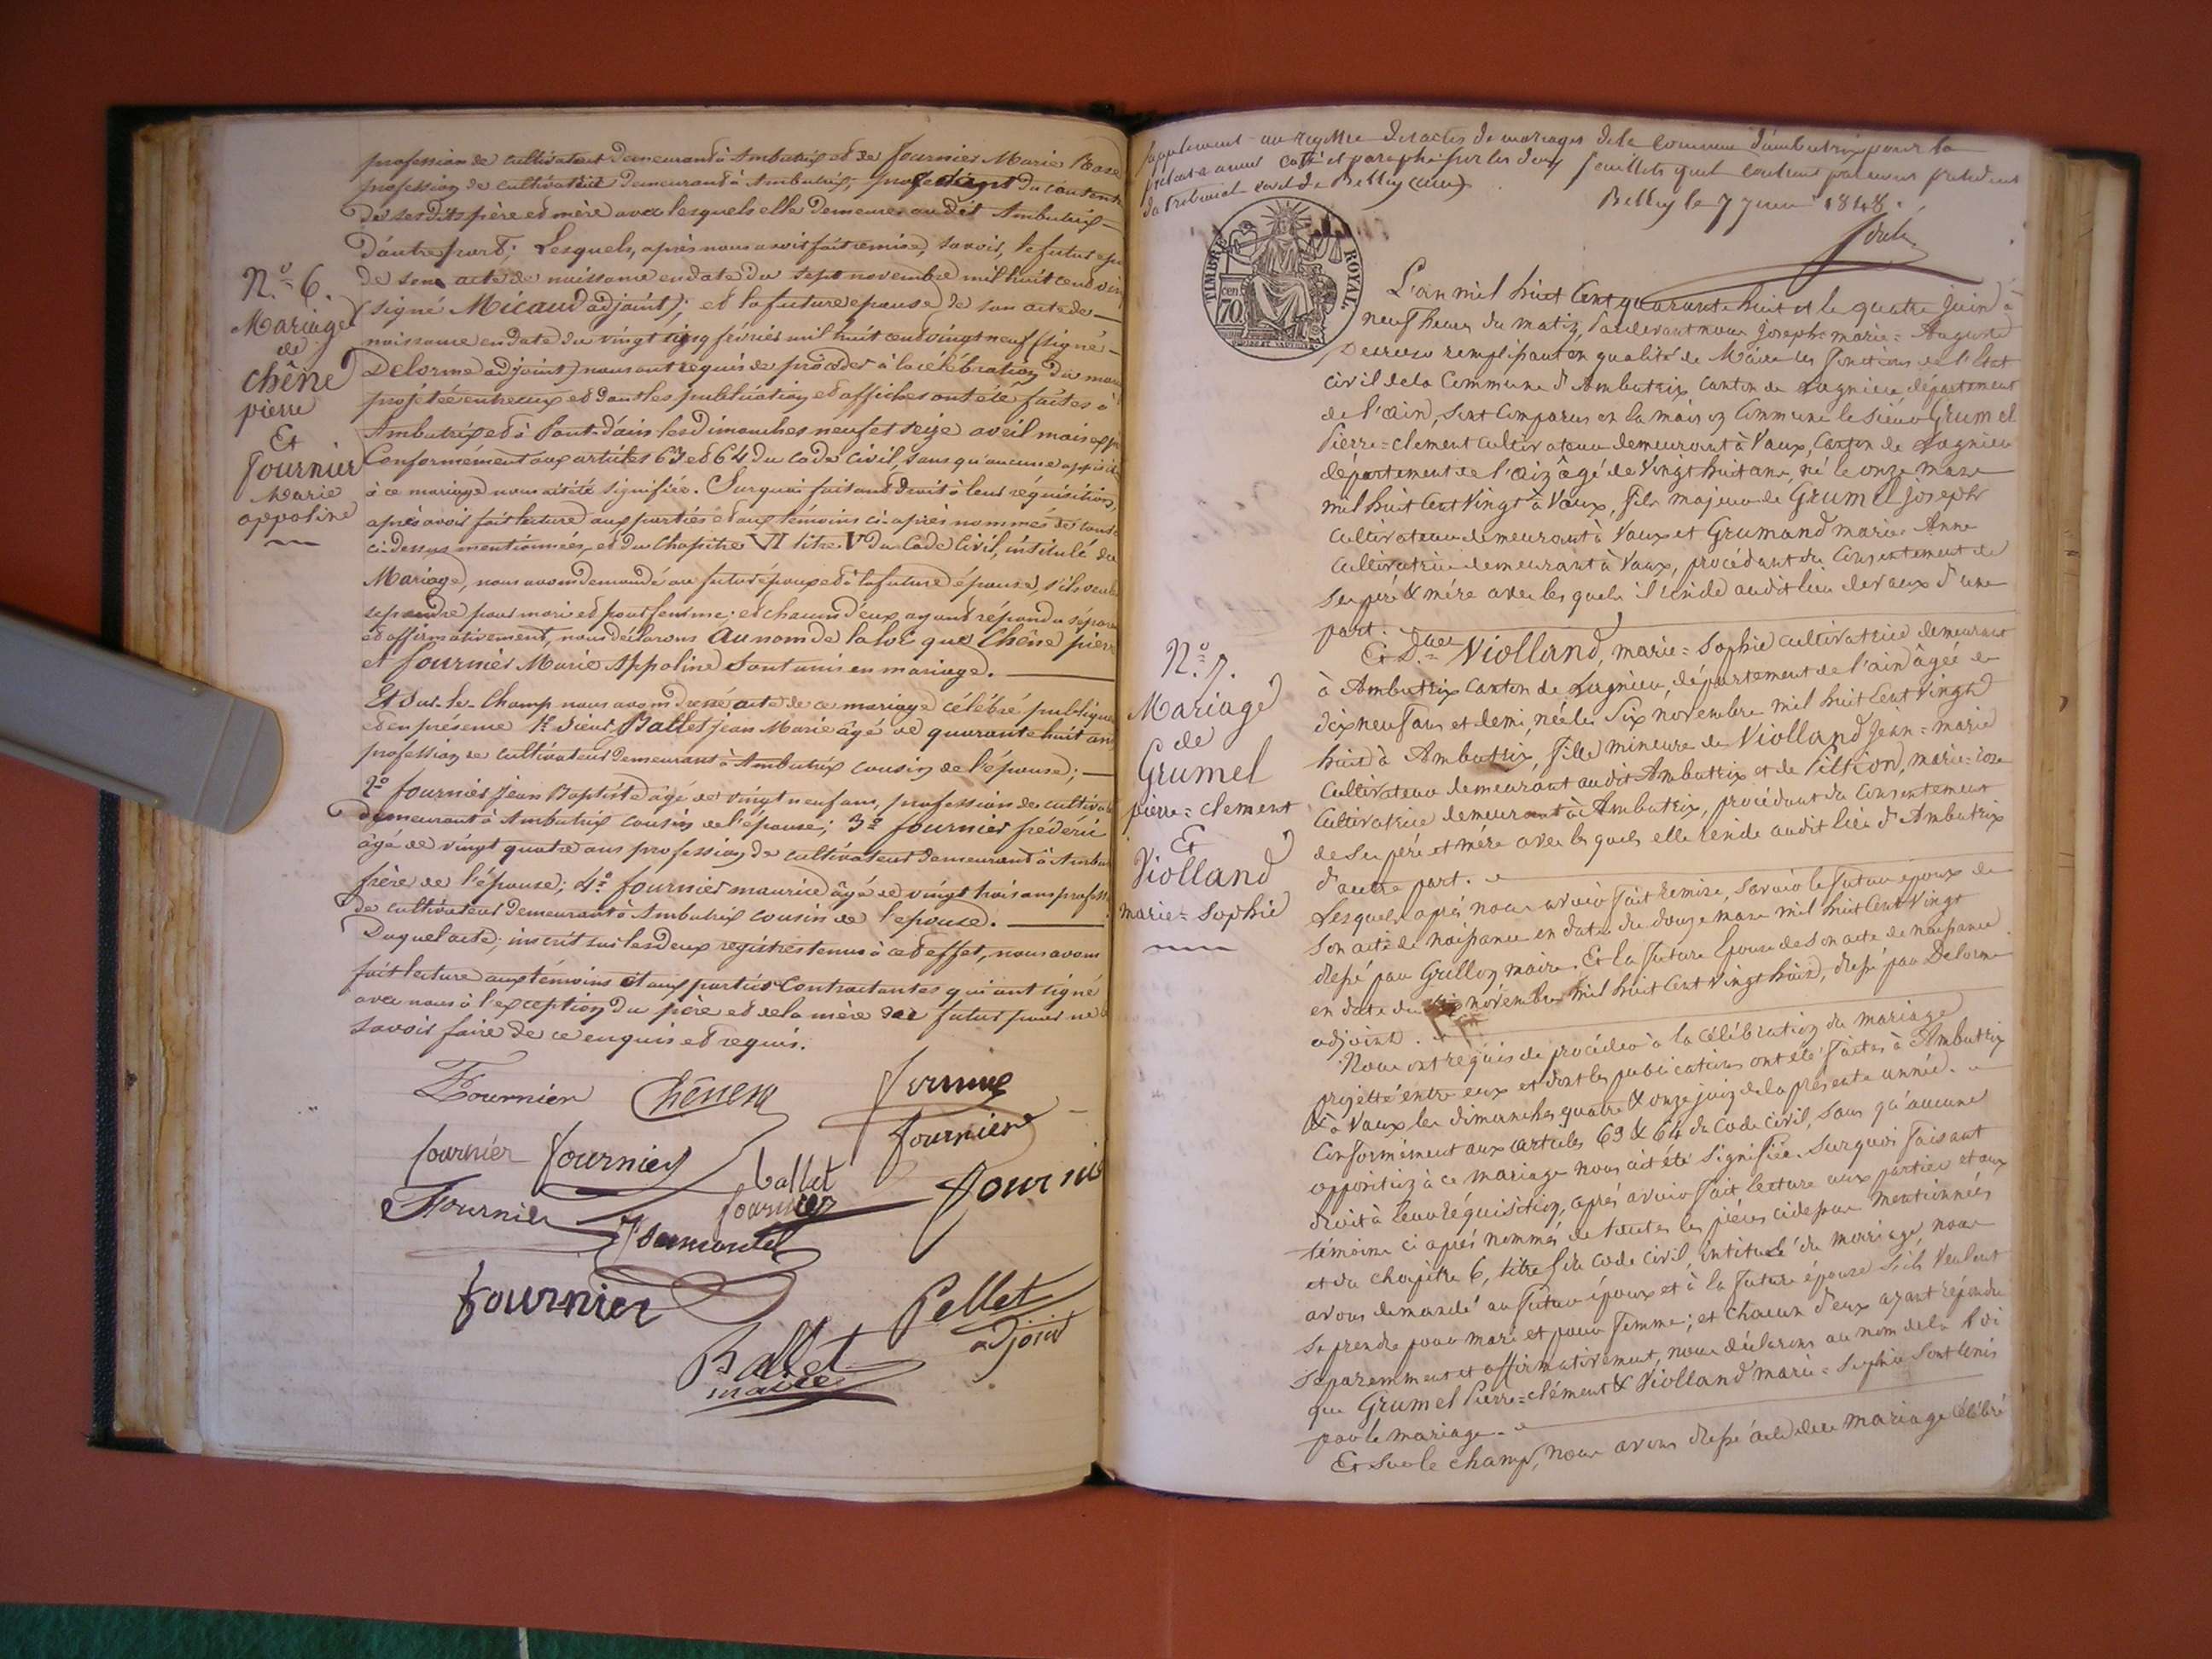 profession de cultivateur demeurant à Ambutrix et de fournier Marie Rose
profession de cultivatrice demeurant à Ambutrix, procédant du consente
de ses dits père et mère avec lesquels elle demeure audit Ambutrix
d'autre part; Lesquels, après nous avoir fait remise, savoir, le futur epo
de son acte de naissance en date du sept novembre mil huit cent vin
(signé Micaud adjoint); et la future epouse de son acte de
naissance en date du vingt cinq février mil huit cent vingt neuf (signé
Delorme adjoint) nous ont requis de procéder à la célébration du mari
projetée entre eux et dont les publication et affiches ont été faites à
Ambutrix et à Pont-d'ain les dimanches neuf et seize avril mois
Conformément aux articles 63 et 64 du code civil, sans qu'aucune
à ce mariage nous ait été signifiée. Surquoi faisant droit à leur réquisition,
après avoir fait lecture aux parties et aux témoins ci-après nommés de toutes
ci-dessus mentionnées, et du Chapitre VI titre V du Code Civil, intitulé du
Mariage, nous avons demandé au futur époux et à la future épouse, s'ils veulent
se prendre pour mari et pour femme; et chacun d'eux ayant répondu sépare
et affirmativement, nous déclarons au nom de la loi que Chêne pierre
et fournier Marie Appoline sont unis en mariage.
Et Sur-le-Champ nous avons dressé acte de ce mariage célébré publique
et en présence 1º Sieur Ballet jean Marie âgé de quarante huit an
profession de cultivateur demeurant à Ambutrix cousin de l'épouse;
2º fournier Jean Baptiste âgé de vingt neuf ans, profession de cultivat
demeurant à Ambutrix cousin de l'épouse; 3º fournier frédéric
âgé de vingt quatre ans profession de cultivateur demeurant à Ambu
frère de l'épouse; 4º fournier maurice âgé de vingt trois ans profess
de cultivateur demeurant à Ambutrix cousin de l'epouse.
Duquel acte; inscrit sur les deux registres tenus à cet effet, nous avons
fait lecture aux témoins et aux parties Contractantes qui ont signé
avec nous à l'exception du père et de la mère du futur pour ne
savoir faire de ce enquis et requis.
Nº 6.
Mariage
de
chêne
pierre
Et
fournier
Marie
appoline
Fournier Chêne
fournier fournier ballet fournier
Fournier fournier
fournier
Pellet
adjoint
Ballet
maire
Supplement au registre des actes de mariages de la commune d'ambutrix pour la
présente année coté et paraphé sur les deux feuillets qu'il contient par nous président
du tribunal civil de Belley (ain)
Belley le 7 juin 1848.
TIMBRE ROYAL
cen. 70
L'an mil huit Cent quarante huit et le quatre juin à
neuf heures du matin, Pardevant nous Joseph=marie=Auguste
remplissant en qualité de Maire les fonctions de l'Etat
civil de la Commune d'Ambutrix, canton de Lagnieu département
de l'ain, sont comparus en la maison Commune le sieur Grumel
Pierre=clement cultivateur demeurant à Vaux, Canton de Lagnieu
département de l'ain âgé de Vingt huit ans, né le onze mars
mil huit Cent Vingt à Vaux, fils majeur de Grumel joseph
Cultivateur demeurant à Vaux et Grumand marie Anne
cultivatrice demeurant à Vaux, procédant du Consentement de
ses père & mère avec lesquels il réside audit lieu de vaux d'une
part.
Et D.lle Violland, marie=Sophie cultivatrice demeurant
à Ambutrix canton de Lagnieu, département de l'ain âgée de
dix neuf ans et demi, née le Six novembre mil huit Cent Vingt
huit à Ambutrix, fille mineure de Violland Jean=marie
Cultivateur demeurant audit Ambutrix et de Pittion, marie=rose
Cultivatrice demeurant à Ambutrix, procédant du Consentement
de ses père et mère avec lesquels elle réside audit lieu d'Ambutrix
d'autre part.
Lesquels après nous avoir fait remise, savoir le futur époux de
son acte de naissance en date du douze mars mil huit Cent Vingt
dressé par Grillon maire. Et la future Epouse de son acte de naissance
en date du novembre mil huit Cent Vingt huit, dressé par Delorme
adjoint.
Nous ont requis de procéder à la célébration du mariage
projetté entre eux et dont les publications ont été faites à Ambutrix
& à Vaux les dimanches quatre & onze juin de la présente année.
Conformément aux articles 63 & 64 du Code civil, sans qu'aucune
opposition à ce mariage nous ait été signifiée. Surquoi faisant
droit à leur réquisition, après avoir fait lecture aux parties et aux
témoins ci après nommés de toutes les pièces cidessus mentionnées
et du chapitre 6, titre 5 du Code civil, intitulé du mariage, nous
avons demandé au futur époux et à la future épouse s'ils Veulent
se prendre pour mari et pour femme; et Chacun d'eux ayant répondu
separemment et affirmativement, nous déclarons au nom de la loi
que Grumel Pierre=clément & Violland marie=Sophie sont Unis
par le mariage.
Et sur le champ, nous avons dressé acte de ce mariage célébré
Nº 7.
Mariage
de
Grumel
pierre=clement
Et
Violland
marie=Sophie